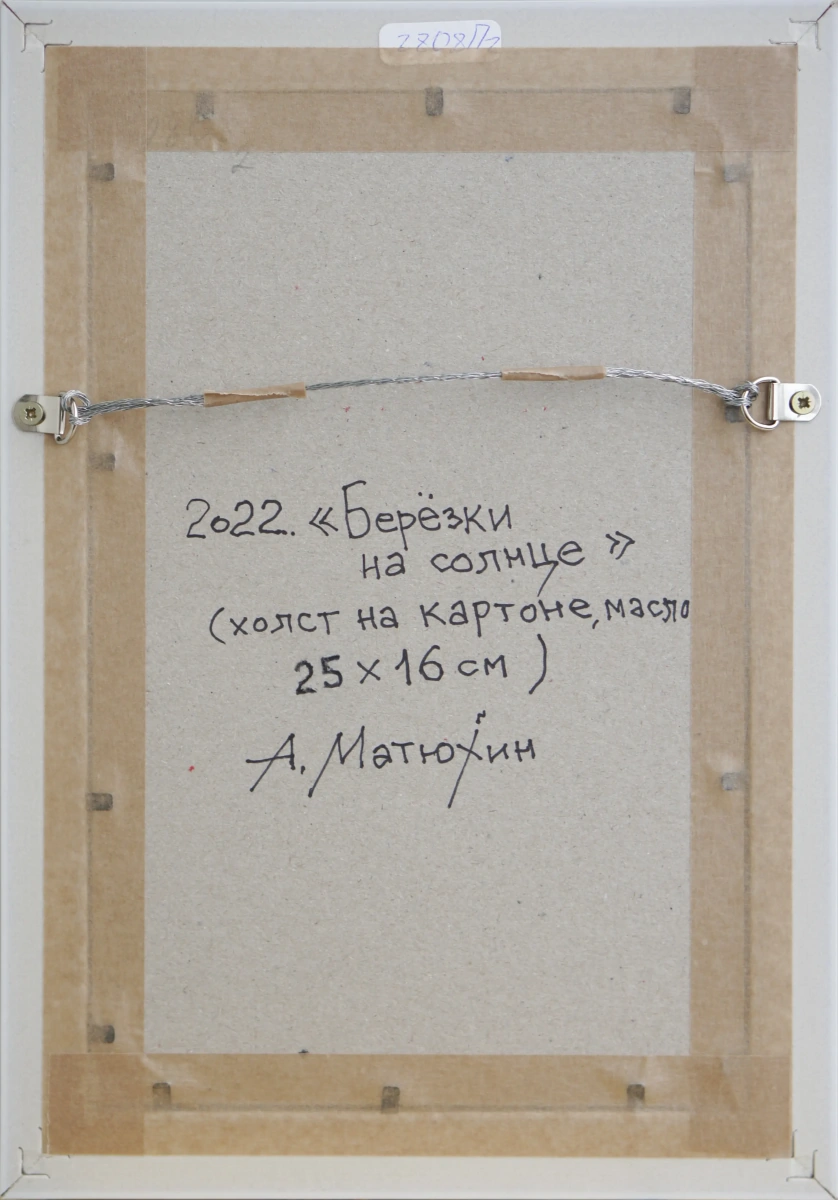 2022. «Берёзки
на солнце»
(холст на картоне, масло
25 х 16 см)
А. Матюхин